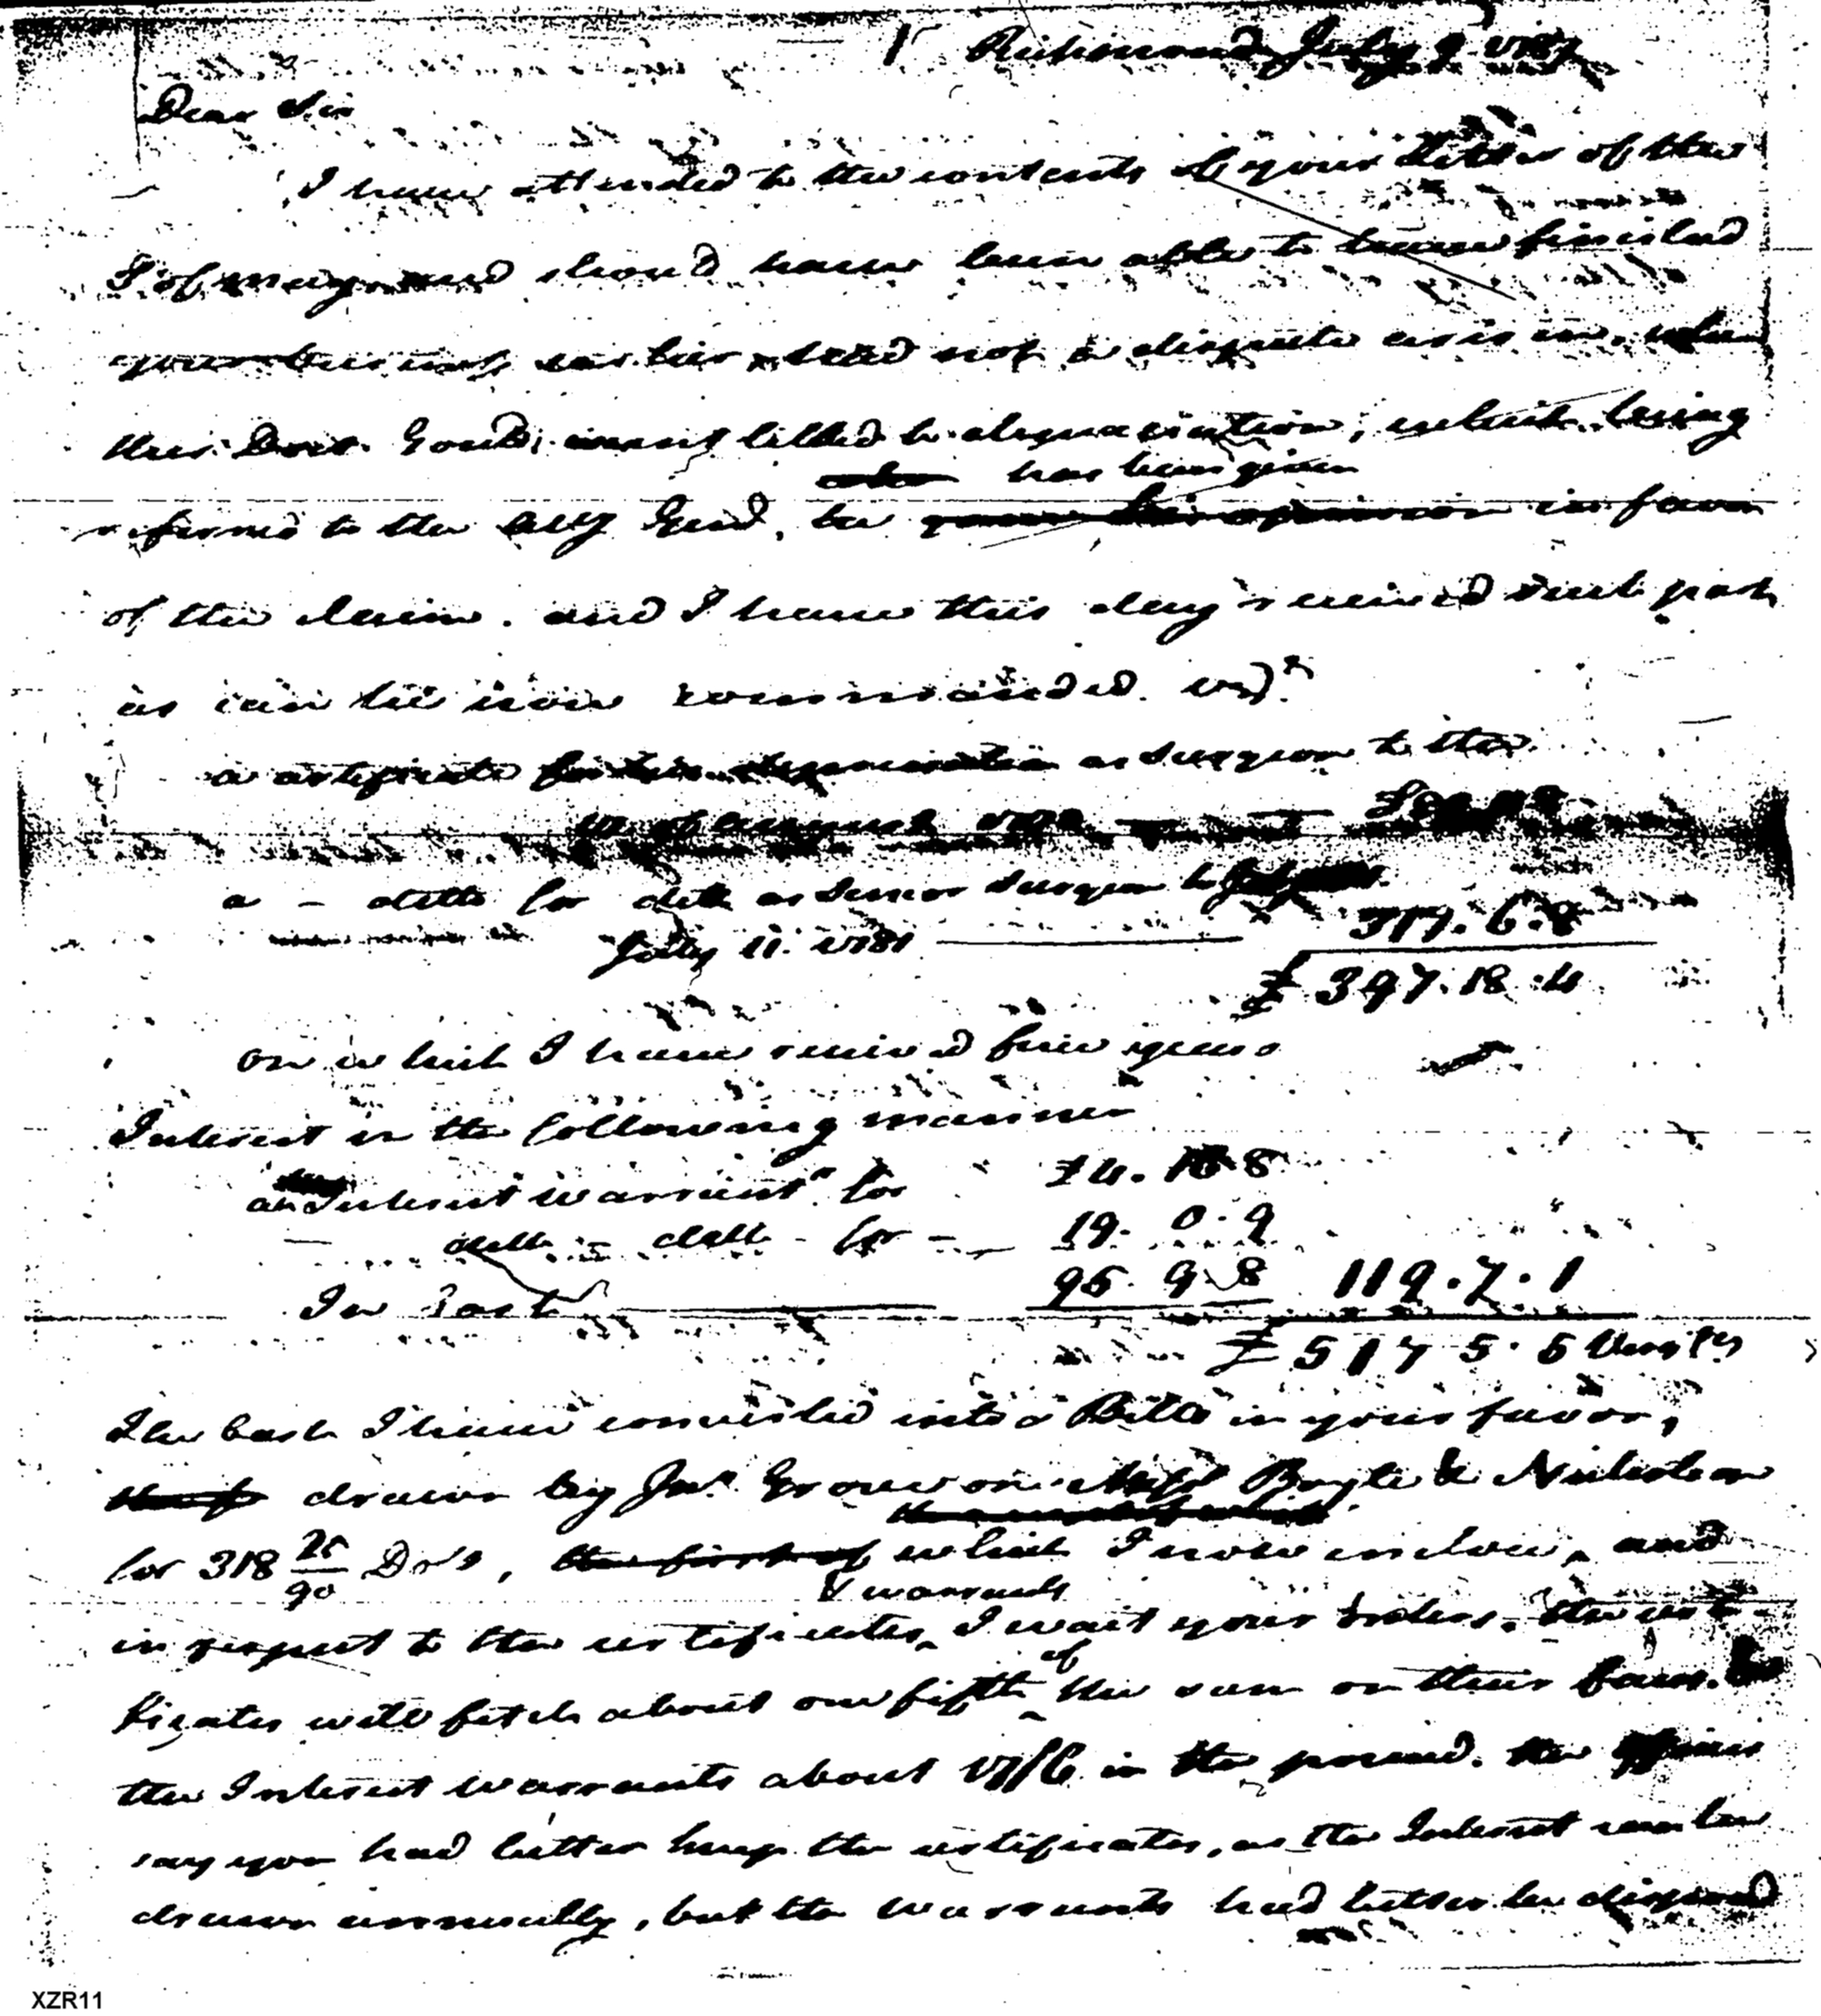 Richmond July 9 1787
Dear Sir
I have attended to the contents of your Letter of the
of may and shou'd have been able to have finished
your business earlier, had not a dispute arisen, whe
ther Doct. Gould, was intitled to depreciation, which being
also has been given
referred to the Atty Genl, he gave his opinion in favor
of the claim. and I have this day received such part
as can be now commanded. viz.
a certificate for his depreciation as Surgeon to the
of august
a - ditto for ditto as Senior Surgeon to July
July 11. 1781 317. 6. 8
£ 397. 18. 4
on which I have received five years
Interest in the following manner
an Interest warrant for £4. 16 8
ditto - ditto - for - 19. 0. 9
In Cash 95. 9. 8 119. 7. 1
£ 517 5. 5
The Cash I have converted into a Bill in your favor,
drawn by Jno. Grove on Messr Boyle & Nicholson
for 318 25/90 Drs, the first of which I now inclose, and
& warrants
in respect to the certificates I wait your orders. the cert-
of
ficates will fetch about one fifth the sum on their face. &
the Interest warrants about 17/6 in the pound. the officers
say you had better keep the certificates, as the Interest can be
drawn annually, but the warrants had better be disposed
XZR11